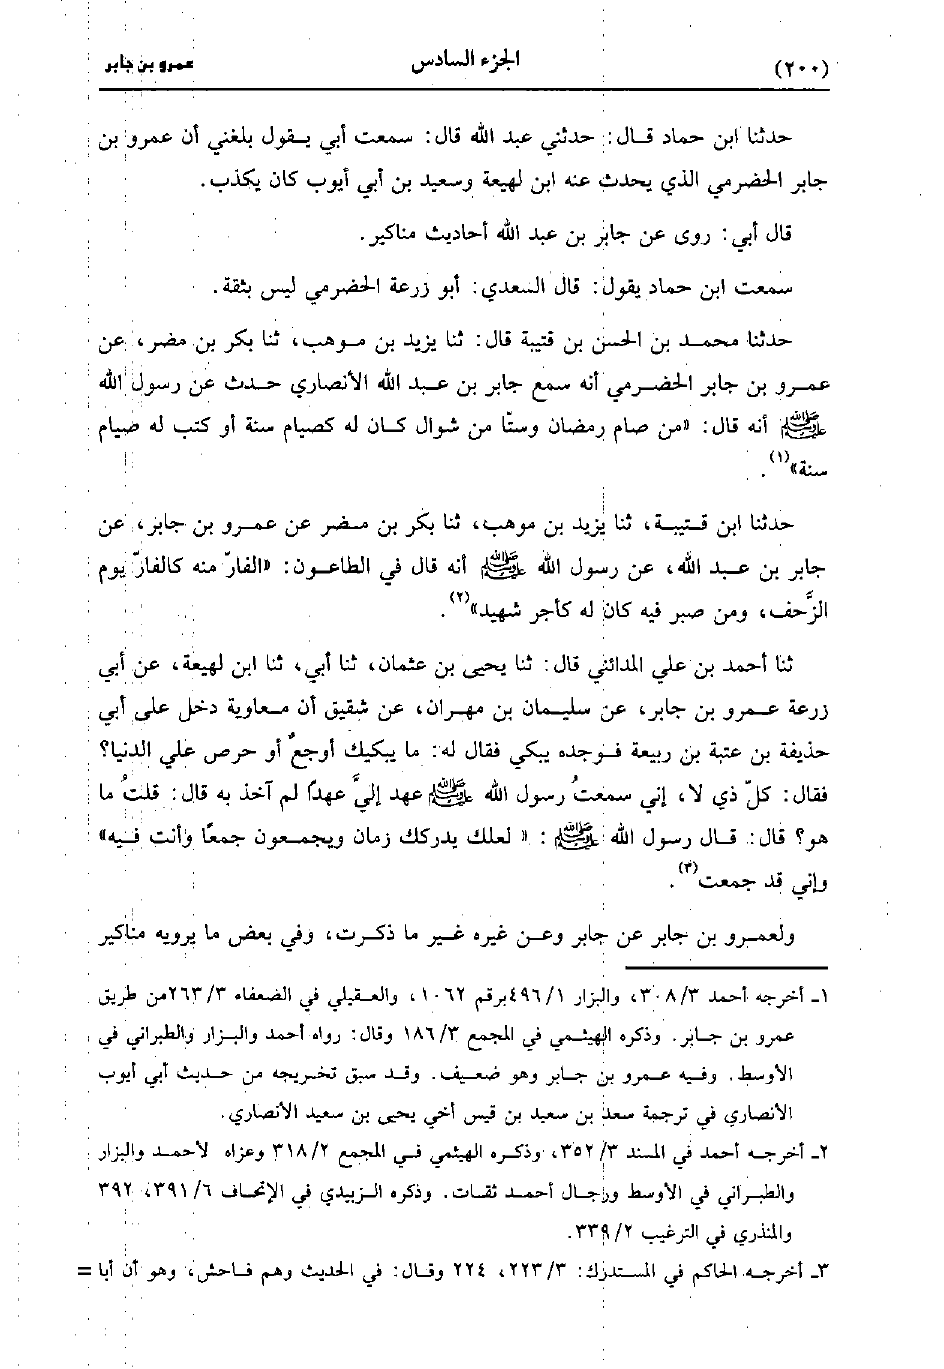 (٢٠٠) الجزء السادس عمرو بن جابر
حدثنا ابن حماد قال: حدثني عبد الله قال: سمعت أبي يقول بلغني أن عمرو بن
جابر الحضرمي الذي يحدث عنه ابن لهيعة وسعيد بن أبي أيوب كان يكذب.
قال أبي: روى عن جابر بن عبد الله أحاديث مناكير.
سمعت ابن حماد يقول: قال السعدي: أبو زرعة الحضرمي ليس بثقة.
حدثنا محمد بن الحسن بن قتيبة قال: ثنا يزيد بن موهب، ثنا بكر بن مضر، عن
عمرو بن جابر الحضرمي أنه سمع جابر بن عبد الله الأنصاري حدث عن رسول الله
ﷺ أنه قال: «من صام رمضان وستًا من شوال كان له كصيام سنة أو كتب له صيام
سنة»(١).
حدثنا ابن قتيبة، ثنا يزيد بن موهب، ثنا بكر بن مضر عن عمرو بن جابر، عن
جابر بن عبد الله، عن رسول الله ﷺ أنه قال في الطاعون: «الفارّ منه كالفارّ يوم
الزَّحف، ومن صبر فيه كان له كأجر شهيد»(٢).
ثنا أحمد بن علي المدائني قال: ثنا يحيى بن عثمان، ثنا أبي، ثنا ابن لهيعة، عن أبي
زرعة عمرو بن جابر، عن سليمان بن مهران، عن شقيق أن معاوية دخل على أبي
حذيفة بن عتبة بن ربيعة فوجده يبكي فقال له: ما يبكيك أوجعٌ أو حرص علي الدنيا؟
فقال: كلّ ذي لا، إني سمعتُ رسول الله ﷺ عهد إليَّ عهدًا لم آخذ به قال: قلتُ ما
هو؟ قال: قال رسول الله ﷺ: «لعلك يدركك زمان ويجمعون جمعًا وأنت فيه»
وإني قد جمعت(٣).
ولعمرو بن جابر عن جابر وعن غيره غير ما ذكرت، وفي بعض ما يرويه مناكير
١ـ أخرجه أحمد ٣٠٨/٣، والبزار ٤٩٦/١برقم ١٠٦٢، والعقيلي في الضعفاء ٢٦٣/٣من طريق
عمرو بن جابر. وذكره الهيثمي في المجمع ١٨٦/٣ وقال: رواه أحمد والبزار والطبراني في
الأوسط. وفيه عمرو بن جابر وهو ضعيف. وقد سبق تخريجه من حديث أبي أيوب
الأنصاري في ترجمة سعد بن سعيد بن قيس أخي يحيى بن سعيد الأنصاري.
٢ـ أخرجه أحمد في المسند ٣٥٢/٣، وذكره الهيثمي في المجمع ٣١٨/٢ وعزاه لأحمد والبزار
والطبراني في الأوسط ورجال أحمد ثقات. وذكره الزبيدي في الإتحاف ٣٩١/٦، ٣٩٢
والمنذري في الترغيب ٣٣٩/٢.
٣ـ أخرجه الحاكم في المستدرك: ٢٢٣/٣، ٢٢٤ وقال: في الحديث وهم فاحش، وهو أن أبا =